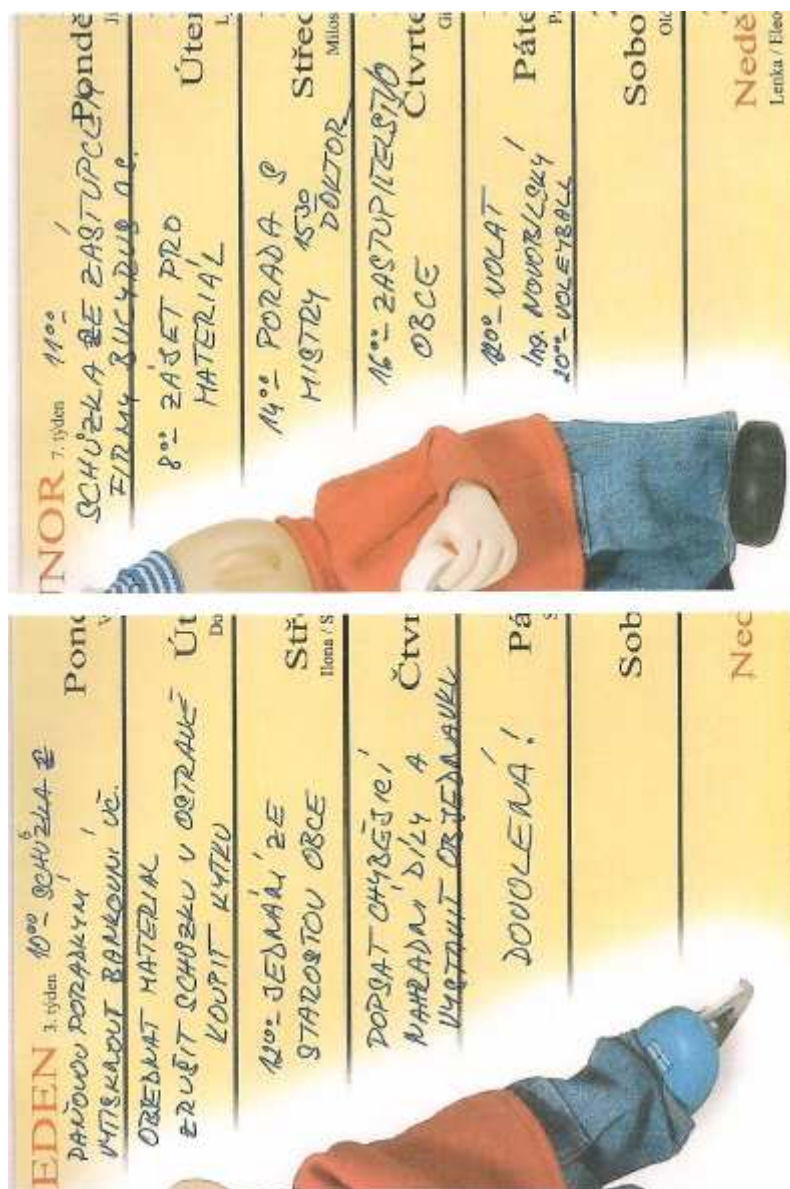 ÚNOR 7. týden 11⁰⁰
SCHŮZKA ZE ZÁSTUPCEM
FIRMY BUCYRUS a.s.
Pondě
8⁰⁰- ZAJET PRO
MATERIÁL
Úter
14⁰⁰- PORADA S
MISTRY 15³⁰
DOKTOR
Střed
Milos
16⁰⁰- ZASTUPITELSTVO
OBCE
Čtvrte
12⁰⁰- VOLAT
Ing. NOVOBILSKÝ
20⁰⁰- VOLEYBALL
Páte
Sobo
Nedě
Lenka / Eleo
EDEN 3. týden 10⁰⁰- SCHŮZKA Z
DAŇOVOU PORADKYNÍ
VYTISKNOUT BANKOVNÍ ÚČ.
Pond
OBJEDNAT MATERIAL
ZRUŠIT SCHŮZKU V OSTRAVĚ
KOUPIT KYTKU
Út
Do
12⁰⁰- JEDNÁNÍ ZE
STAROSTOU OBCE
Stř
Ilona / S
DOPSAT CHYBĚJÍCÍ
NAHRADNÍ DÍLY A
VYSTAVIT OBJEDNAVKU
Čtvr
DOVOLENÁ!
Pá
Sob
Ned